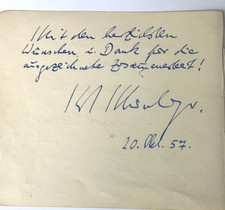 Mit den herzlichsten
Wünschen u. Dank für die
ausgezeichnete Zusammenarbeit!
20. Okt. 57.